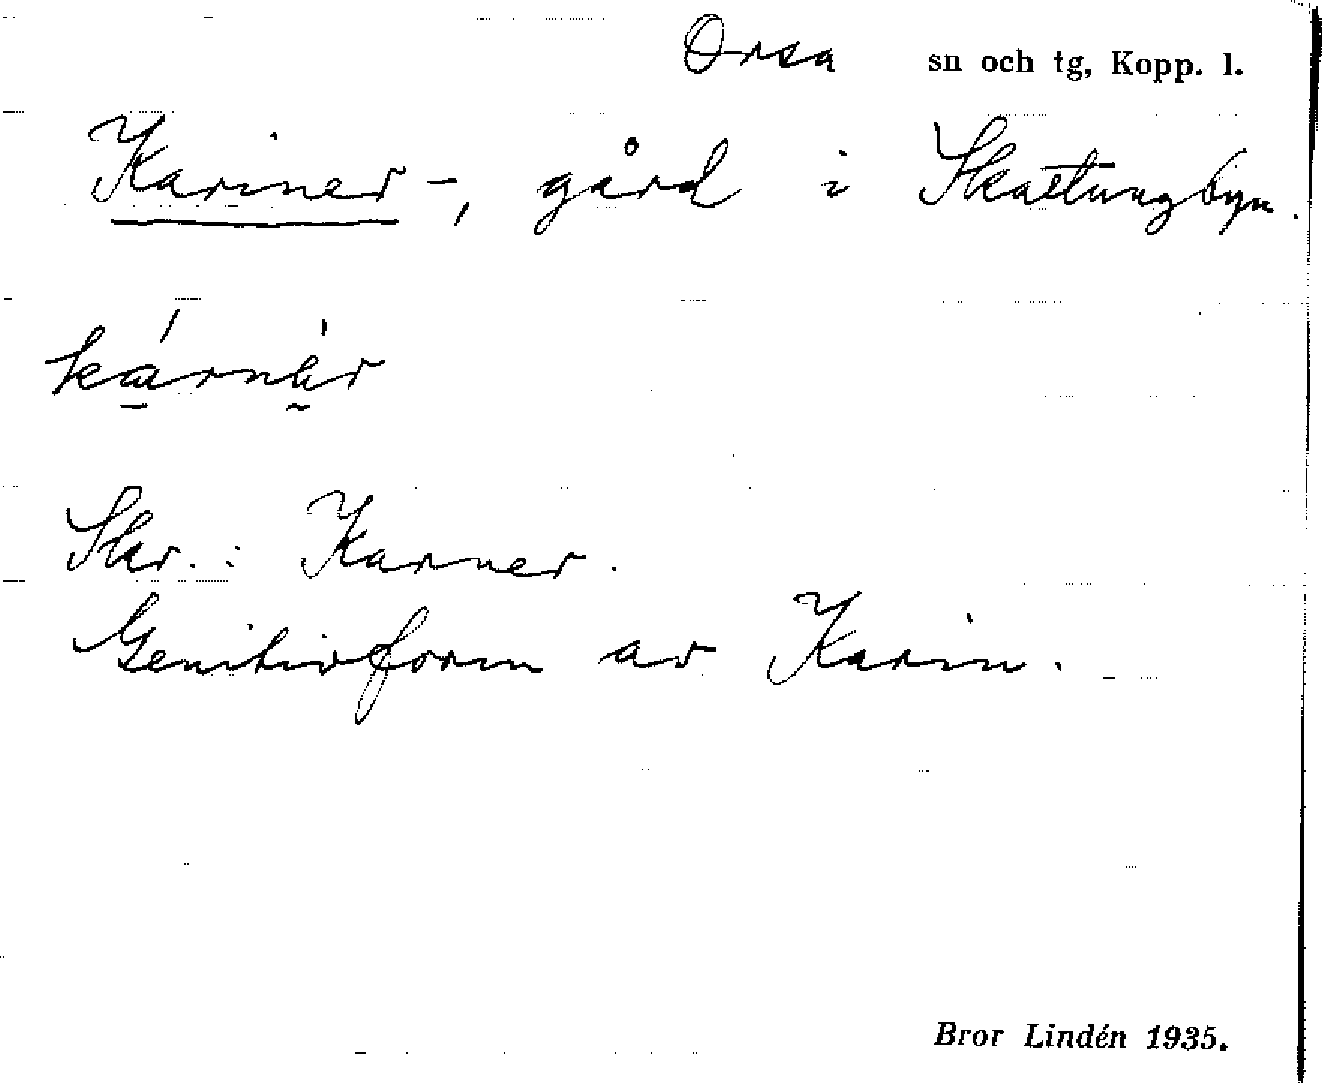 Orsa sn och tg, Kopp. l.
Kariner-, gård i Skattungbyn.
Skr.: Karner.
Genitivform av Karin.
Bror Lindén 1935.